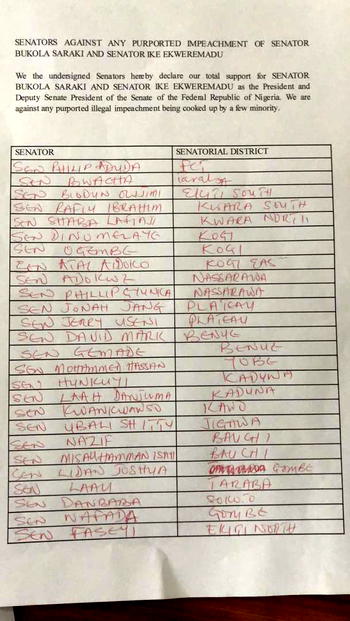 SENATORS AGAINST ANY PURPORTED IMPEACHMENT OF SENATOR
BUKOLA SARAKI AND SENATOR IKE EKWEREMADU
We the undersigned Senators hereby declare our total support for SENATOR
BUKOLA SARAKI AND SENATOR IKE EKWEREMADU as the President and
Deputy Senate President of the Senate of the Federal Republic of Nigeria. We are
against any purported illegal impeachment being cooked up by a few minority.
SENATOR SENATORIAL DISTRICT
SEN PHILIP ADUDA FCT
SEN BWACHA Taraba
SEN BIODUN OLUJIMI EKITI SOUTH
SEN RAFIU IBRAHIM KWARA SOUTH
SEN SHABA LAFIAJI KWARA NORTH
SEN DINO MELAYE KOGI
SEN OGEMBE KOGI
SEN ATAI AIDOKO KOGI EAS
SEN ADOKWE NASSARAWA
SEN PHILLIP GYUNKA NASSARAWA
SEN JONAH JANG PLATEAU
SEN JERRY USENI PLATEAU
SEN DAVID MARK BENUE
SEN GEMADE BENUE
SEN MOHAMMED HASSAN YOBE
SEN HUNKUYI KADUNA
SEN LAAH DANJUMA KADUNA
SEN KWANKWANSO KANO
SEN UBALI SHITTU JIGAWA
SEN NAZIF BAUCHI
SEN MISAU HAMMAN ISAH BAUCHI
SEN LIDAN JOSHUA GOMBE
SEN TARABA
SEN DANBABA SOKOTO
SEN NAFADA GOMBE
SEN FASEYI EKITI NORTH